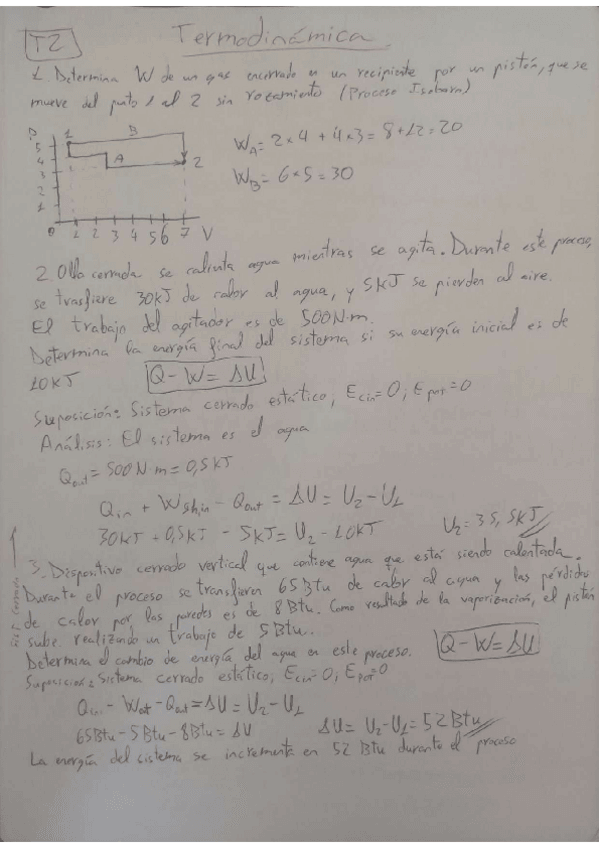 T2
Termodinámica
1. Determina W de un gas encerrado en un recipiente por un pistón, que se
mueve del punto 1 al 2 sin rozamiento (Proceso Isobaro)
P
1
B
5
4
A
2
3
2
1
0 1 2 3 4 5 6 7 V
W_A = 2×4 + 4×3 = 8+12 = 20
W_B = 6×5 = 30
2. Olla cerrada se calienta agua mientras se agita. Durante este proceso,
se trasfiere 30kJ de calor al agua, y 5kJ se pierden al aire.
El trabajo del agitador es de 500N·m.
Determina la energía final del sistema si su energía inicial es de
10kJ
Q - W = ΔU
Suposición: Sistema cerrado estático, Ecin=0; Epot=0
Análisis: El sistema es el agua
Qout = 500N·m = 0,5kJ
Qin + Wsh,in - Qout = ΔU = U2 - U1
30kJ + 0,5kJ - 5kJ = U2 - 10kJ
U2 = 35,5kJ
3. Dispositivo cerrado vertical que contiene agua que está siendo calentada.
Durante el proceso se transfieren 65Btu de calor al agua y las pérdidas
de calor por las paredes es de 8Btu. Como resultado de la vaporización, el pistón
sube realizando un trabajo de 5Btu.
Determina el cambio de energía del agua en este proceso.
Q - W = ΔU
Suposición: Sistema cerrado estático, Ecin=0; Epot=0
Qin - Wout - Qout = ΔU = U2 - U1
65Btu - 5Btu - 8Btu = ΔU
ΔU = U2 - U1 = 52Btu
La energía del sistema se incrementa en 52 Btu durante el proceso